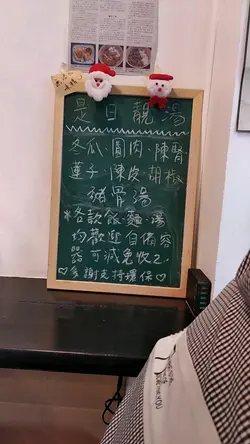 是日靚湯
冬瓜·圓肉·陳腎
蓮子·陳皮·胡椒
豬骨湯
*各款飯·麵·湯
均歡迎自備容
器 可減免收2.
♡多謝支持環保♡